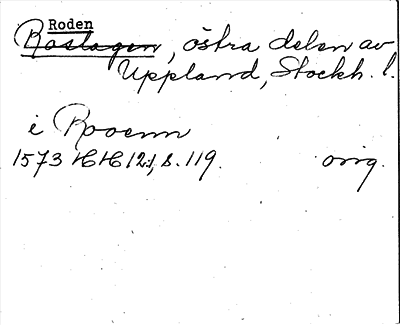 Roden
Roslagen, östra delen av
Uppland, Stockh. l.
i Rooenn
1573 HH 12:1, s. 119. orig.